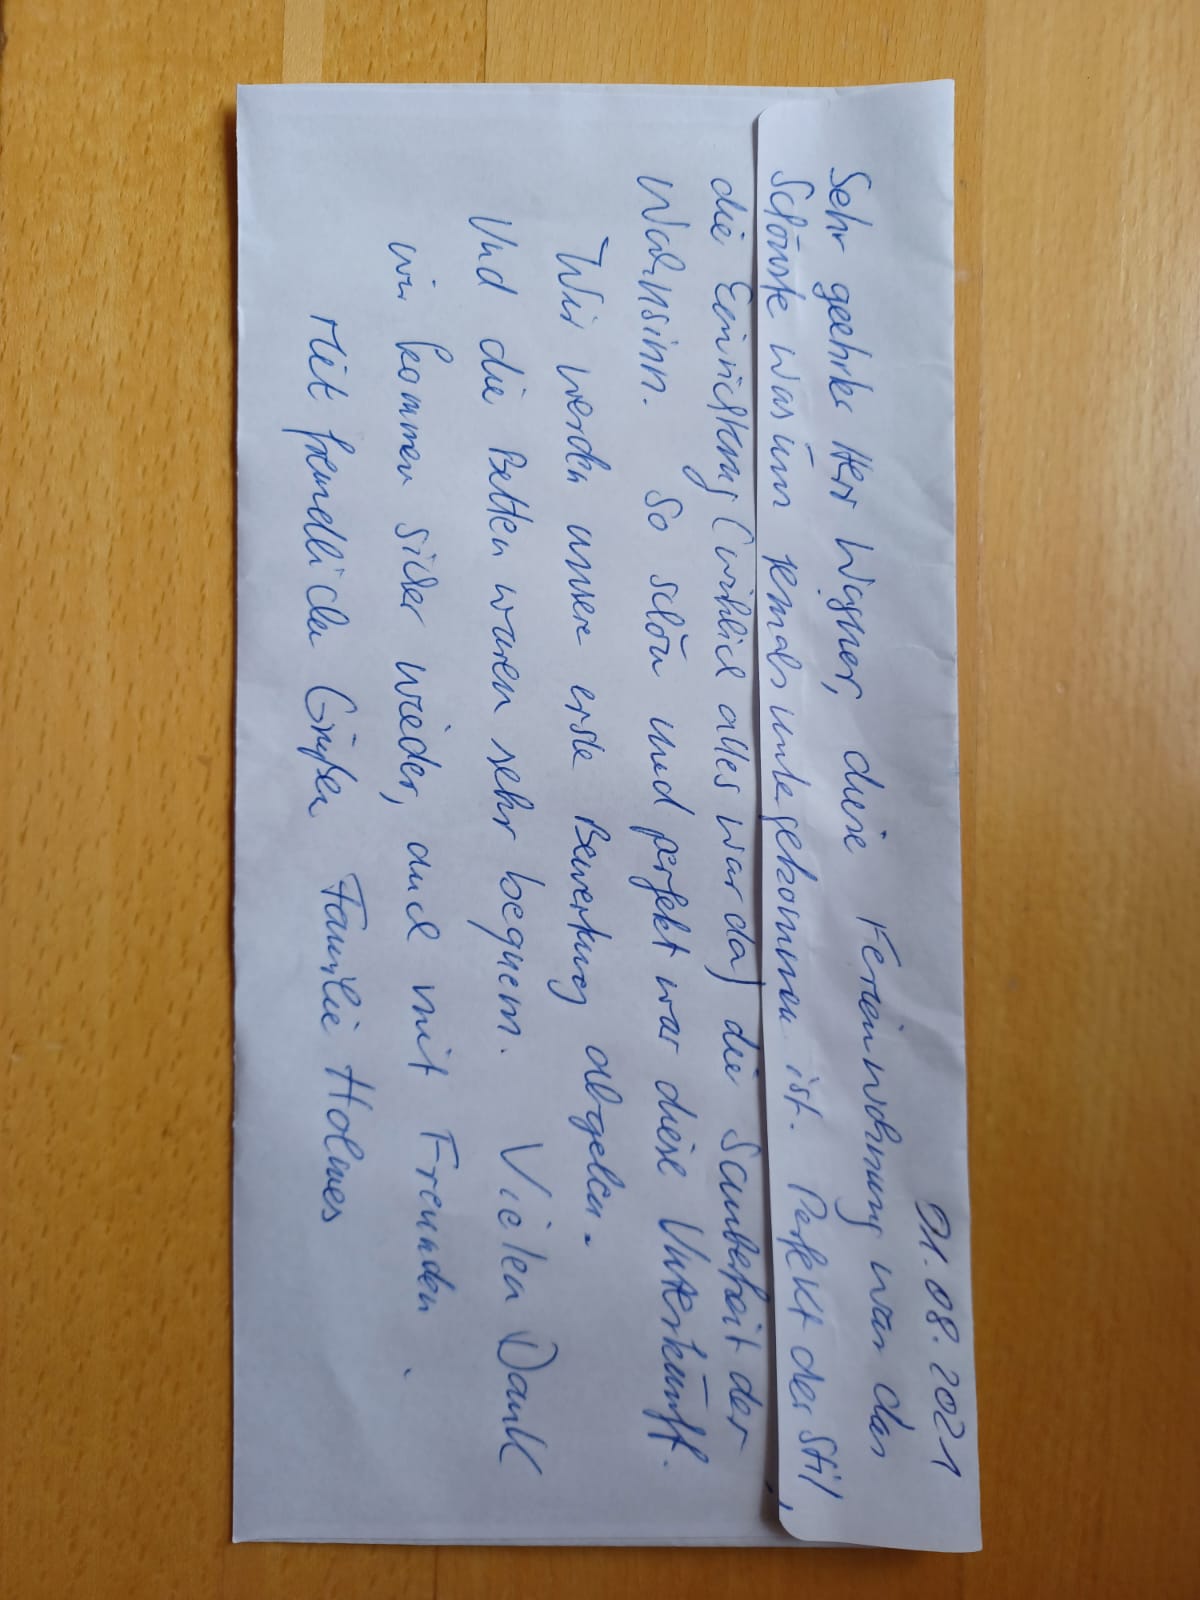 01.08.2021
Sehr geehrter Herr Wagner, diese Ferienwohnung war das
Schönste was uns jemals untergekommen ist. Perfekt der Stil,
die Einrichtung (wirklich alles war da) die Sauberheit der
Wahnsinn. So schön und perfekt war diese Unterkunft.
Wir werden unsere erste Bewertung abgeben.
Und die Betten waren sehr bequem. Vielen Dank
wir kommen sicher wieder, auch mit Freunden.
Mit freundlichen Grüßen Familie Holmes